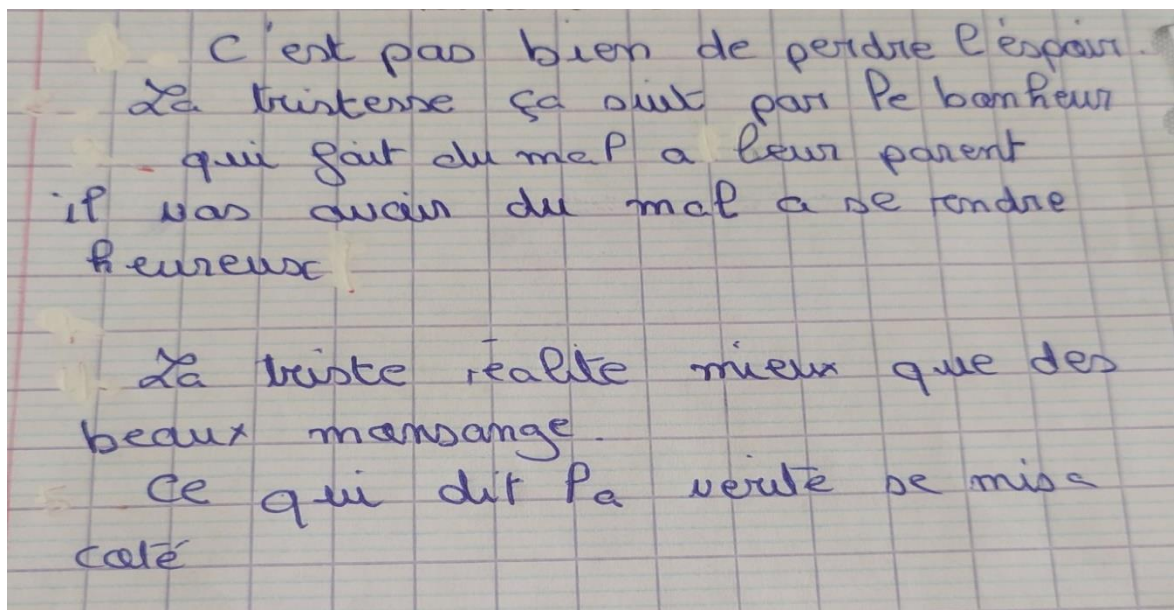 C'est pas bien de perdre l'éspoir.
La tristesse ça suit par le bonheur
qui fait du mal a leur parent
il vas avoir du mal a se rendre
heureux
La triste réalite mieux que des
beaux mansange.
Ce qui dit la verité se mis a
coté